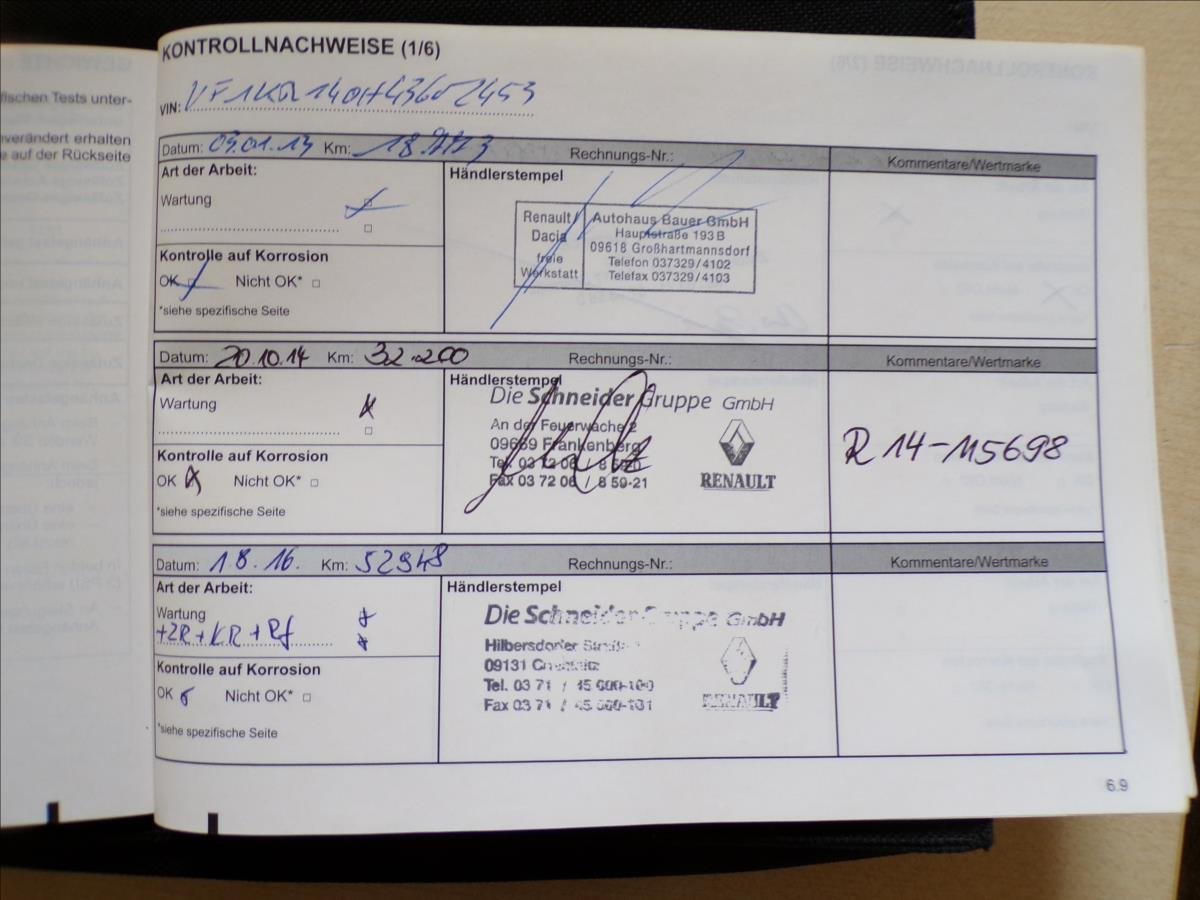 fischen Tests unter-
verändert erhalten
e auf der Rückseite
KONTROLLNACHWEISE (1/6)
VIN:
Datum: 03.01.13 Km: Rechnungs-Nr.: Kommentare/Wertmarke
Art der Arbeit:
Wartung
Kontrolle auf Korrosion
OK Nicht OK*
*siehe spezifische Seite
Händlerstempel
Renault/
Dacia
freie
Werkstatt
Autohaus Bauer GmbH
Hauptstraße 193 B
09618 Großhartmannsdorf
Telefon 037329/4102
Telefax 037329/4103
Datum: 20.10.14 Km: 32.200 Rechnungs-Nr.: Kommentare/Wertmarke
Art der Arbeit:
Wartung
Kontrolle auf Korrosion
OK Nicht OK*
*siehe spezifische Seite
Händlerstempel
Die Schneider Gruppe GmbH
An der Feuerwache 2
09669 Frankenberg
Tel. 03 72 06 / 8 59-0
Fax 03 72 06 / 8 59-21
RENAULT
R 14-115698
Datum: 1.8.16. Km: 52948 Rechnungs-Nr.: Kommentare/Wertmarke
Art der Arbeit:
Wartung
+ZR+KR+Rf
Kontrolle auf Korrosion
OK Nicht OK*
*siehe spezifische Seite
Händlerstempel
Die Schneider Gruppe GmbH
Hilbersdorfer Straße
09131 Chemnitz
Tel. 03 71 / 45 600-100
Fax 03 71 / 45 600-101
RENAULT
6.9